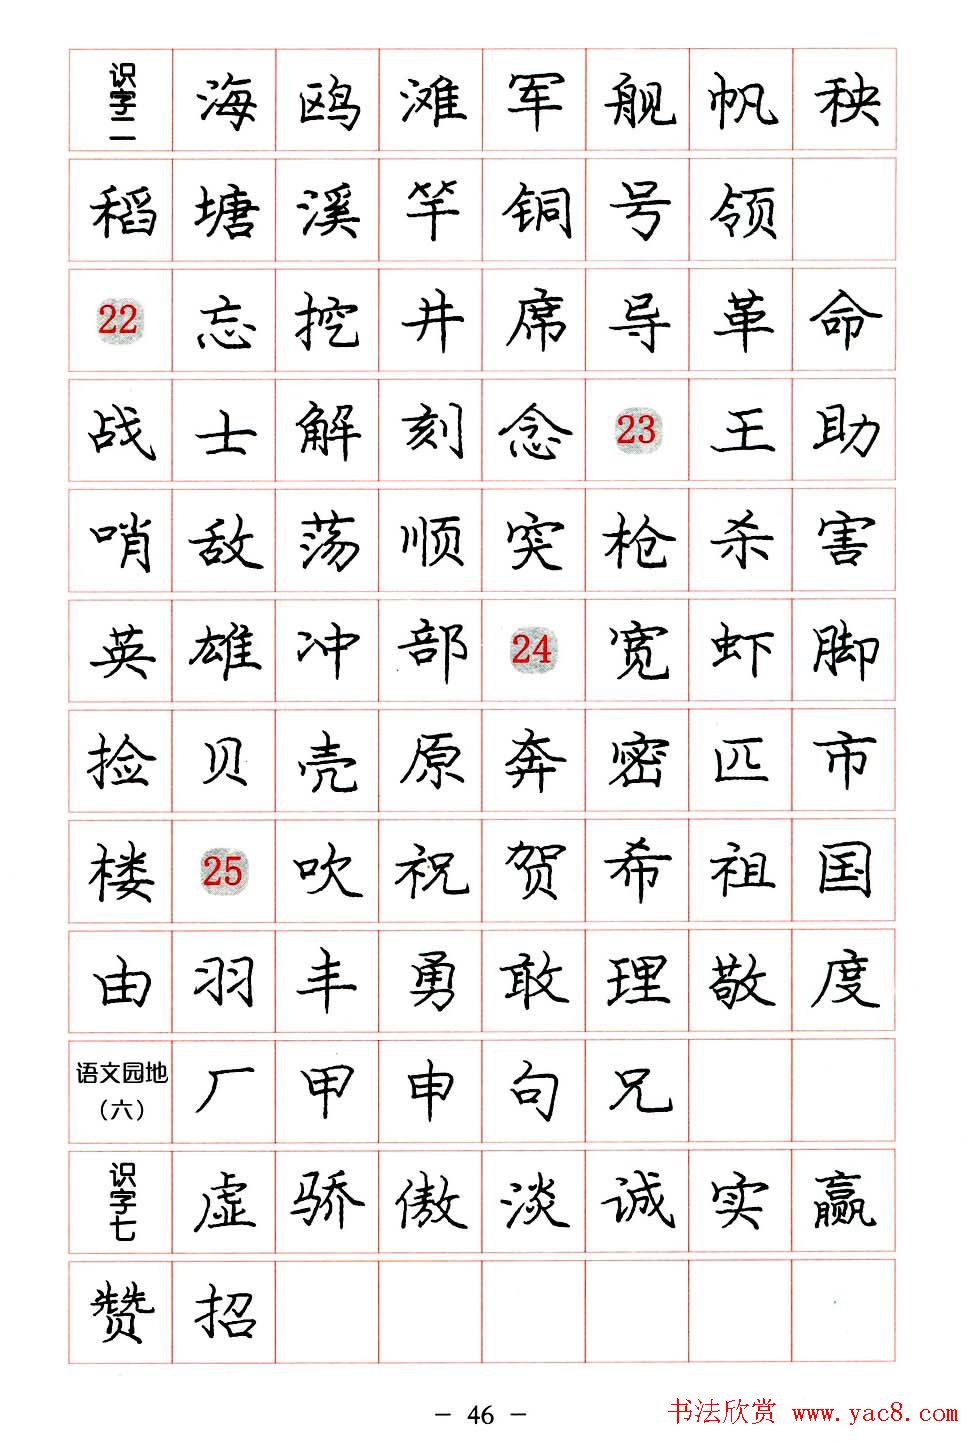 识字二 海 鸥 滩 军 舰 帆 秧
稻 塘 溪 竿 铜 号 领
22 忘 挖 井 席 导 革 命
战 士 解 刻 念 23 王 助
哨 敌 荡 顺 突 枪 杀 害
英 雄 冲 部 24 宽 虾 脚
捡 贝 壳 原 奔 密 匹 市
楼 25 吹 祝 贺 希 祖 国
由 羽 丰 勇 敢 理 敬 度
语文园地(六) 厂 甲 申 句 兄
识字七 虚 骄 傲 淡 诚 实 赢
赞 招
- 46 -
书法欣赏 www.yac8.com